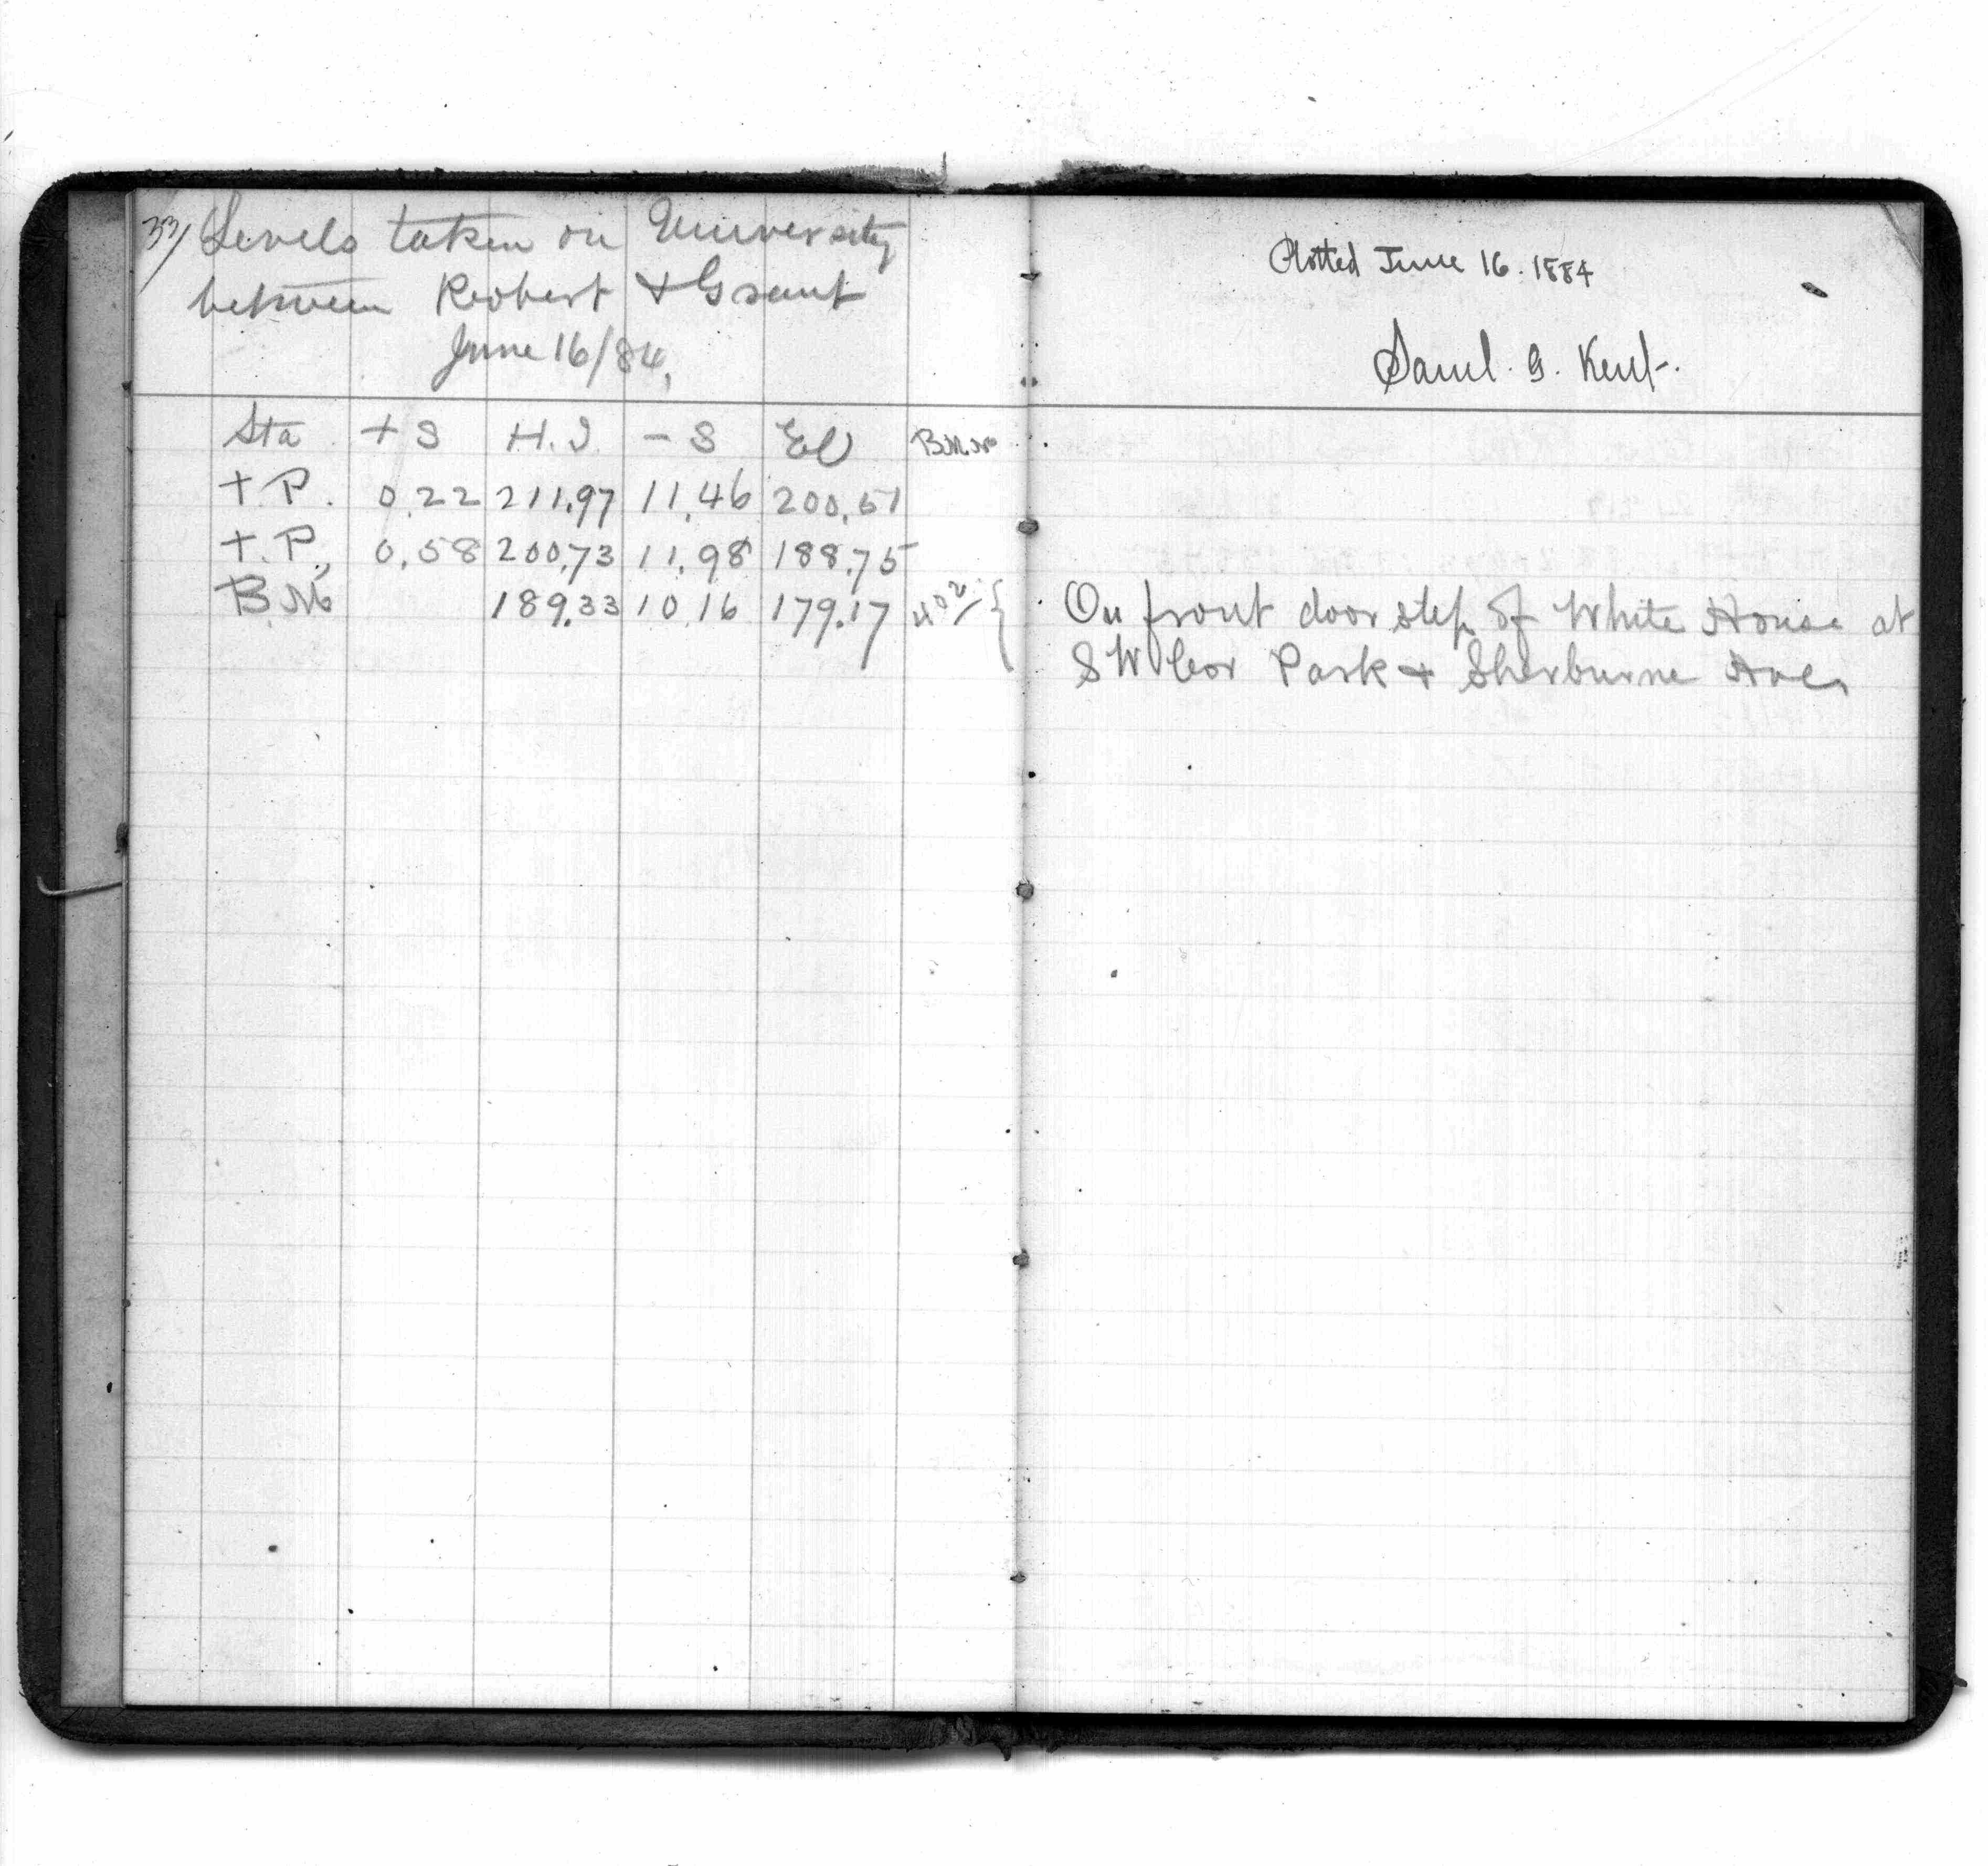 33/ Levels taken on University
between Robert & Grant
June 16/84,
Sta + S H.I. - S El B.M. No
T.P. 0.22 211.97 11.46 200.51
T.P., 0.58 200.73 11.98 188.75
B.M. 189.33 10.16 179.17 402 {
Plotted June 16. 1884
Saml. G. Kent.
On front door step of White House at
SW Cor Park & Sherburne Aves